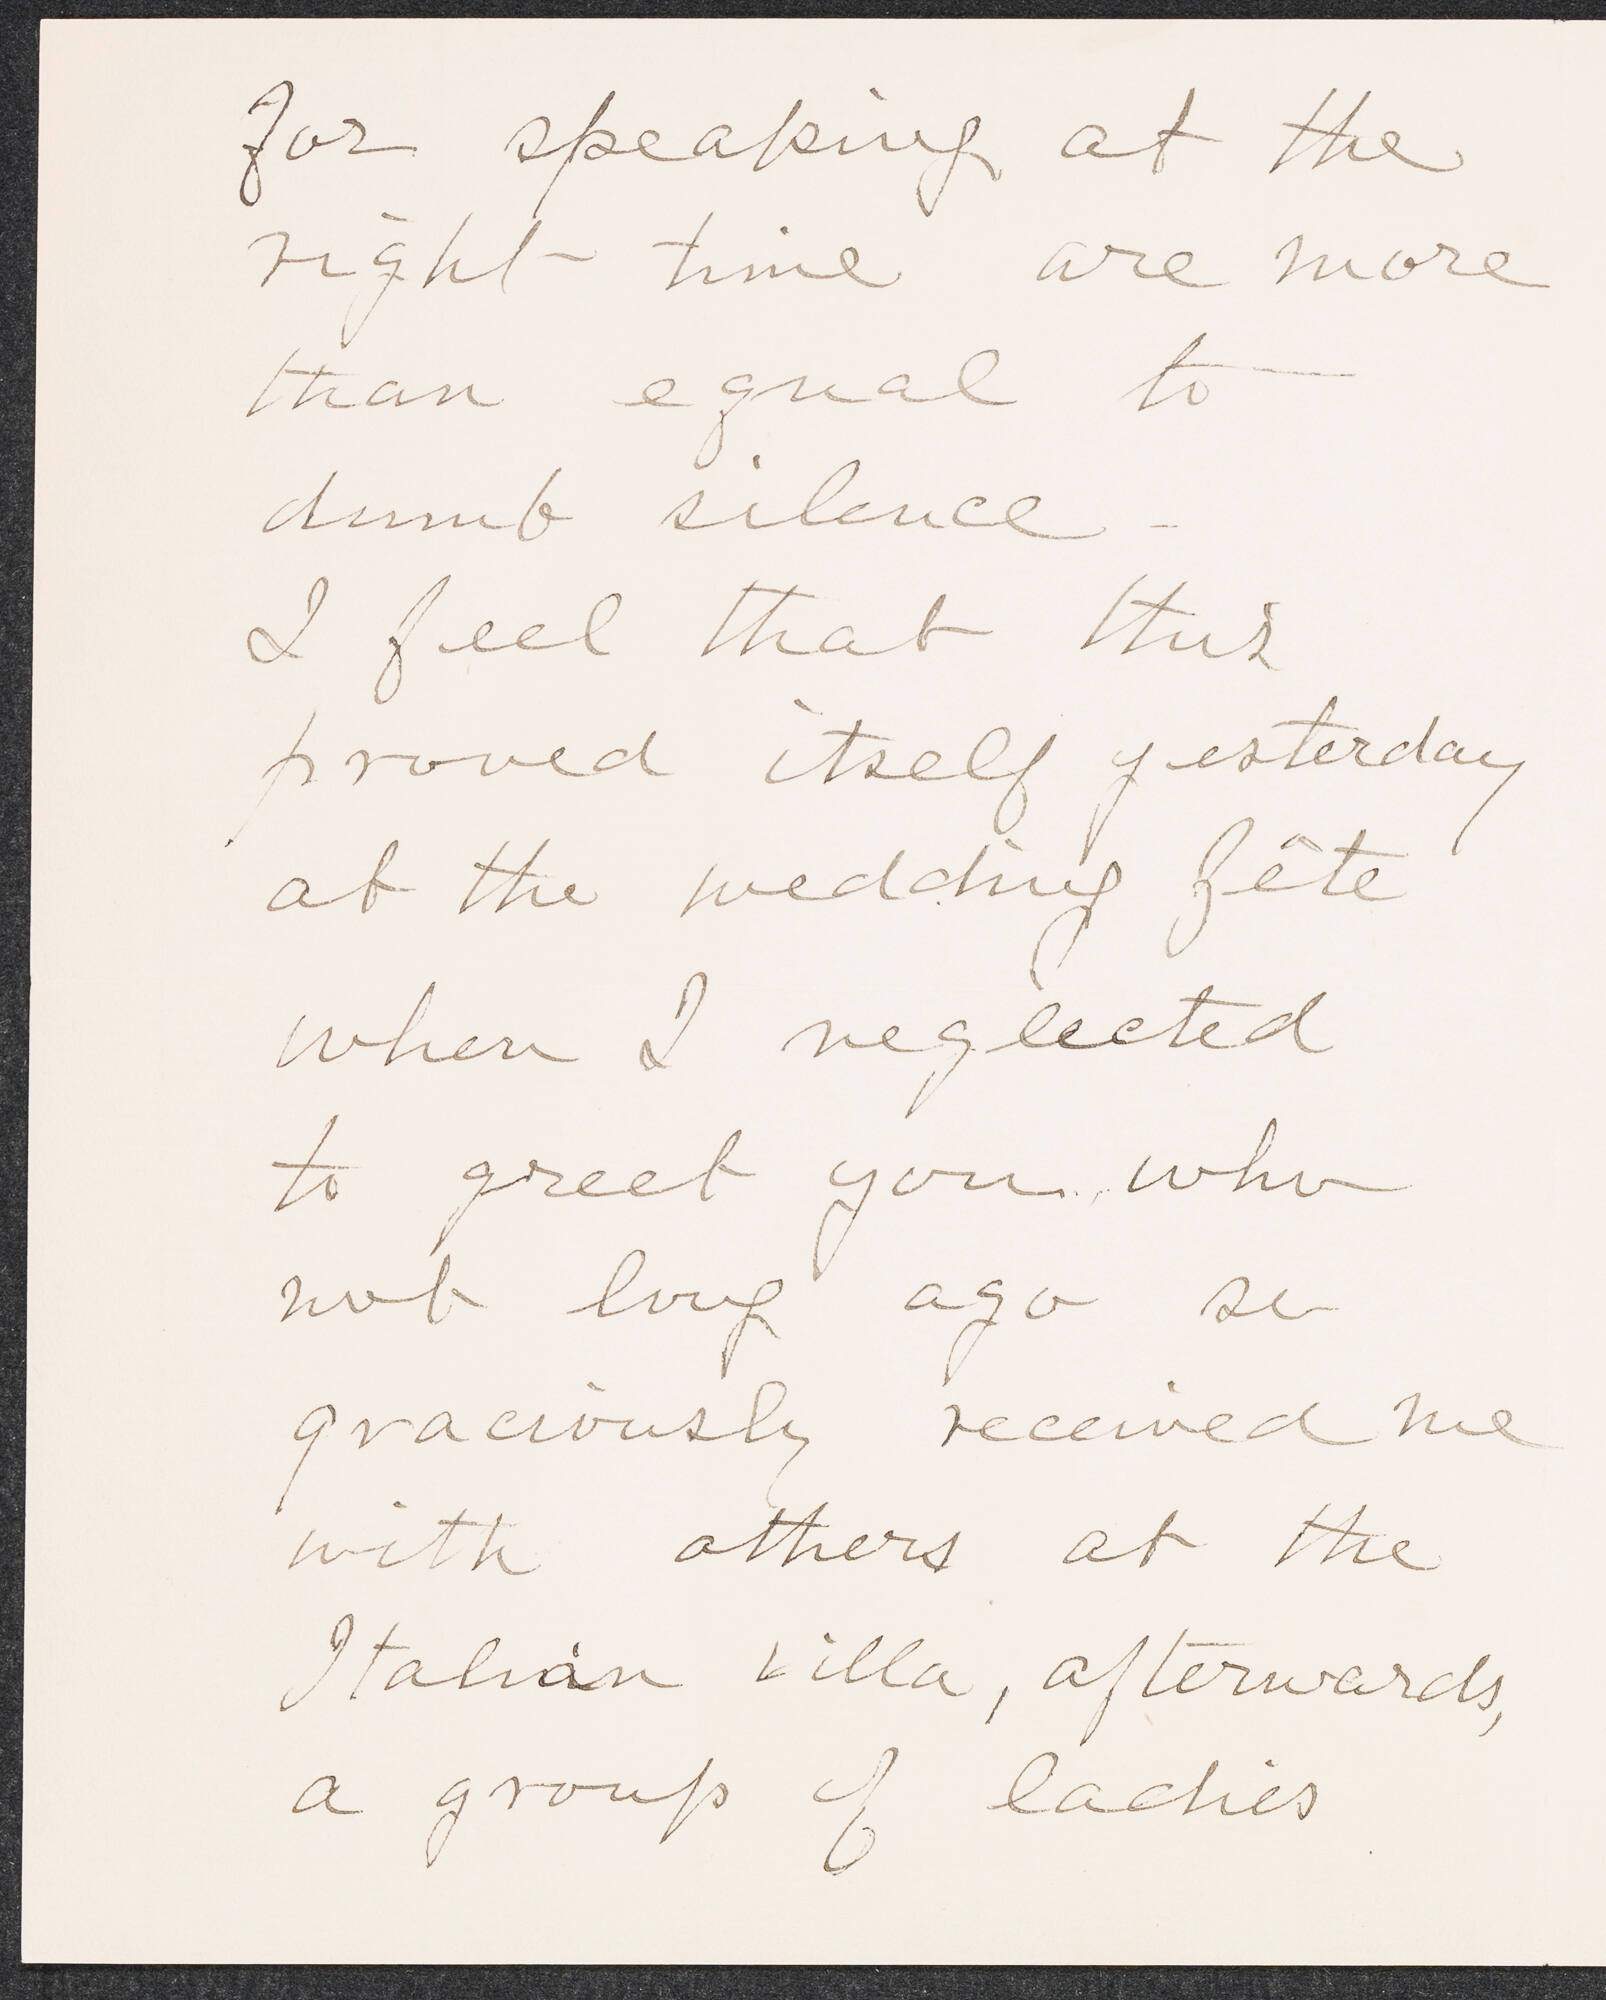 for speaking at the
right time are more
than equal to
dumb silence -
I feel that this
proved itself yesterday
at the wedding fête
when I neglected
to greet you who
not long ago so
graciously received me
with others at the
Italian villa, afterwards,
a group of ladies